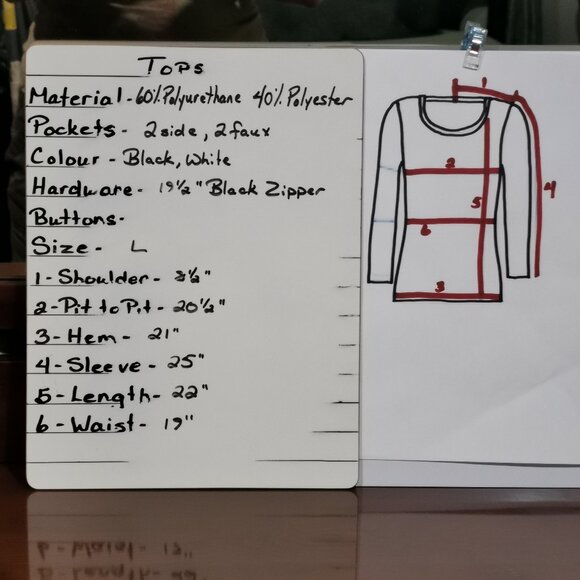 Tops
Material - 60% Polyurethane 40% Polyester
Pockets - 2 side, 2 faux
Colour - Black, White
Hardware - 19½" Black Zipper
Buttons -
Size - L
1 - Shoulder - 3½"
2 - Pit to Pit - 20½"
3 - Hem - 21"
4 - Sleeve - 25"
5 - Length - 22"
6 - Waist - 19"
1
2
4
5
6
3
6 - Waist - 19"
5 - Length - 22"